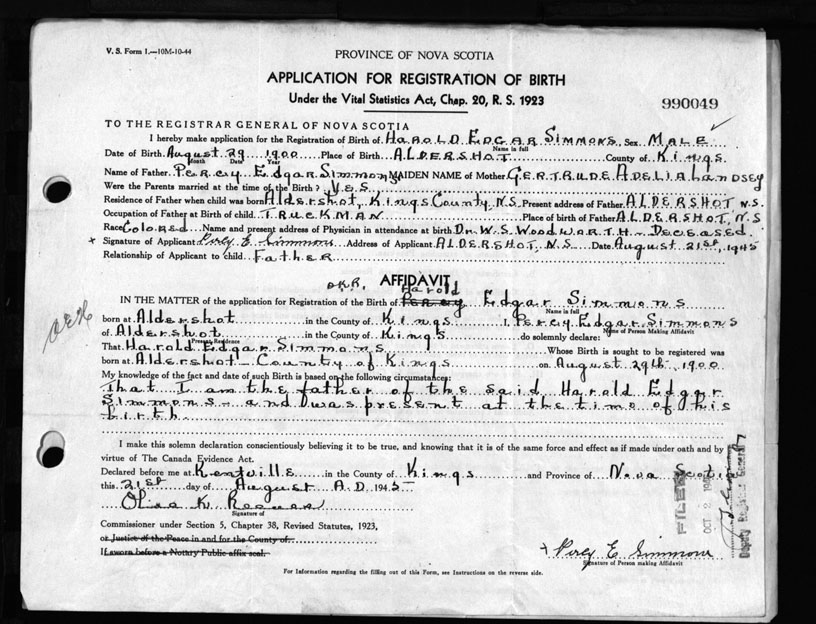 V. S. Form 1.—10M-10-44
PROVINCE OF NOVA SCOTIA
APPLICATION FOR REGISTRATION OF BIRTH
Under the Vital Statistics Act, Chap. 20, R. S. 1923
990049
TO THE REGISTRAR GENERAL OF NOVA SCOTIA
I hereby make application for the Registration of Birth of Harold Edgar Simmons Sex Male
Name in full
Date of Birth August 29 1900 Place of Birth Aldershot County of Kings
Month Date Year
Name of Father Percy Edgar Simmons MAIDEN NAME of Mother Gertrude Adelia Landsey
Were the Parents married at the time of the Birth? Yes
Residence of Father when child was born Aldershot, Kings County, N.S. Present address of Father Aldershot N.S.
Occupation of Father at Birth of child Truckman Place of birth of Father Aldershot, N.S
Race Colored Name and present address of Physician in attendance at birth Dr. W. S. Woodworth - Deceased.
+ Signature of Applicant Percy E Simmons Address of Applicant Aldershot, N.S Date August 21st, 1945
Relationship of Applicant to child Father
AFFIDAVIT
Harold
IN THE MATTER of the application for Registration of the Birth of Percy Edgar Simmons
Name in full
born at Aldershot in the County of Kings I, Percy Edgar Simmons
Name of Person making Affidavit
of Aldershot in the County of Kings do solemnly declare:
Present Residence
That Harold Edgar Simmons Whose Birth is sought to be registered was
born at Aldershot County of Kings on August 29th, 1900
My knowledge of the fact and date of such Birth is based on the following circumstances:
That I am the father of the said Harold Edgar
Simmons - and I was present at the time of his
birth
I make this solemn declaration conscientiously believing it to be true, and knowing that it is of the same force and effect as if made under oath and by
virtue of The Canada Evidence Act.
Declared before me at Kentville in the County of Kings and Province of Nova Scotia
this 21st day of August A. D. 1945
Signature of
Commissioner under Section 5, Chapter 38, Revised Statutes, 1923,
or Justice of the Peace in and for the County of
If sworn before a Notary Public affix seal.
FILED
OCT 2
Deputy Registrar General
+ Percy E Simmons
Signature of Person making Affidavit
For Information regarding the filling out of this Form, see Instructions on the reverse side.